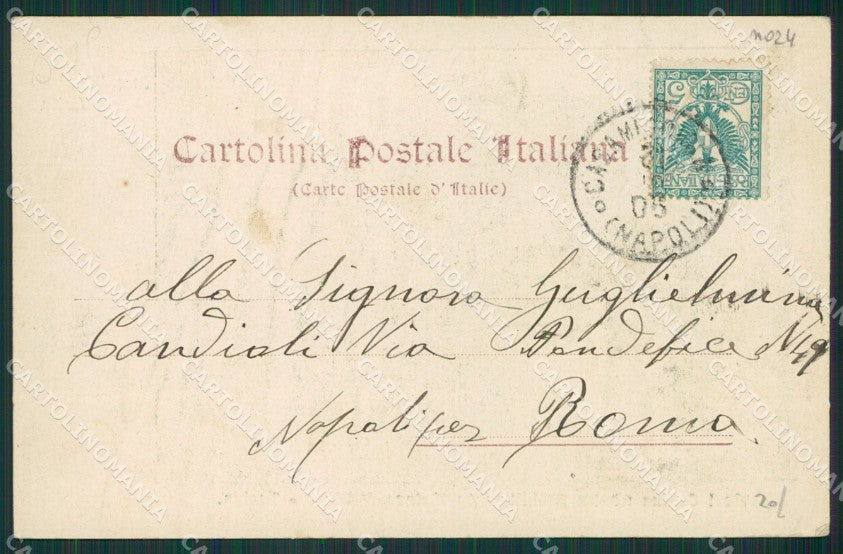 n024
Cartolina Postale Italiana
(Carte Postale d'Italie)
5
05
(NAPOLI)
alla Signora Guglielmina
Candioli Via Pendefice N 49
Napoli per Roma
20/
CARTOLINOMANIA